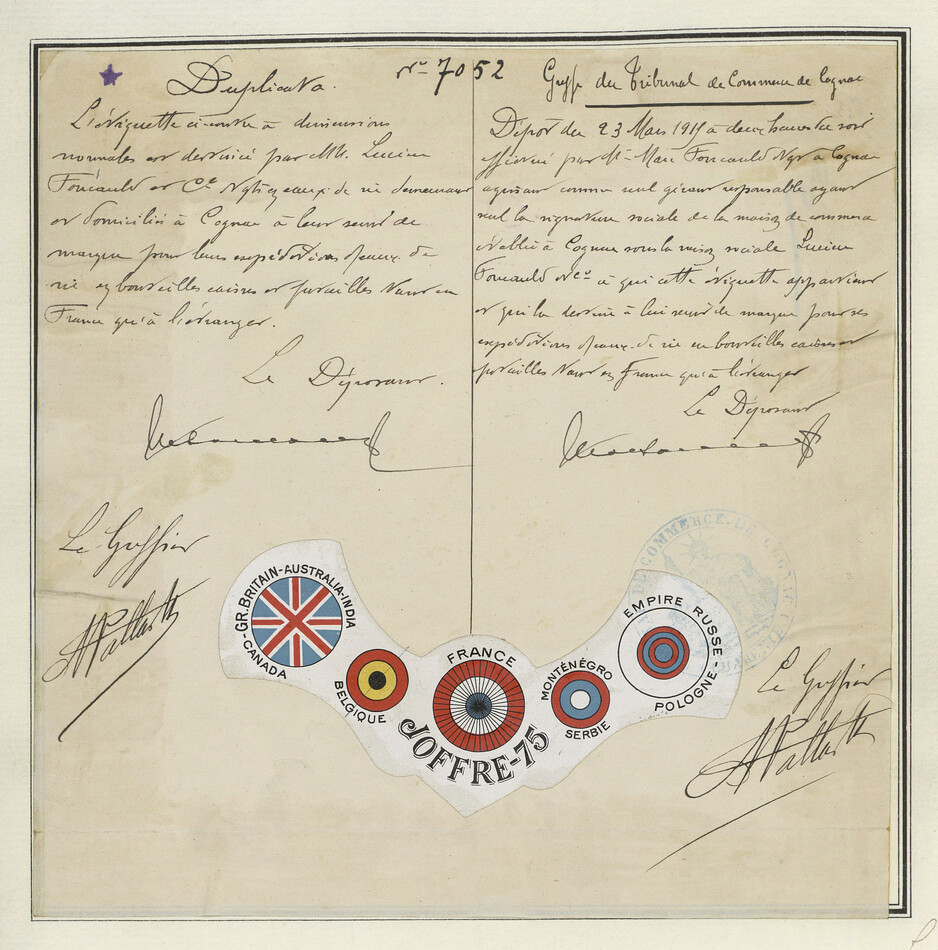 Duplicata.
N° 7052
L'étiquette ci-contre à dimensions
normales est destinée par MM. Lucien
Foucauld et Cie Ngts en eaux de vie demeurant
et domiciliés à Cognac à leur servir de
marque pour leurs expéditions d'eaux de
vie en bouteilles caisses et futailles tant en
France qu'à l'étranger.
Le Déposant.
Le Greffier
Greffe du Tribunal de Commerce de Cognac
Dépôt du 23 Mars 1915 à deux heures du soir
effectué par Mr Marc Foucauld Ngt à Cognac
agissant comme seul gérant responsable ayant
seul la signature sociale de la maison de commerce
établie à Cognac sous la raison sociale Lucien
Foucauld et Cie à qui cette étiquette appartient
et qui la destine à lui servir de marque pour ses
expéditions d'eaux-de-vie en bouteilles caisses et
futailles tant en France qu'à l'étranger
Le Déposant
COMMERCE DE COGNAC
Le Greffier
GR. BRITAIN-AUSTRALIA-INDIA-CANADA
BELGIQUE
FRANCE
MONTÉNÉGRO
SERBIE
EMPIRE RUSSE-POLOGNE-
JOFFRE-75